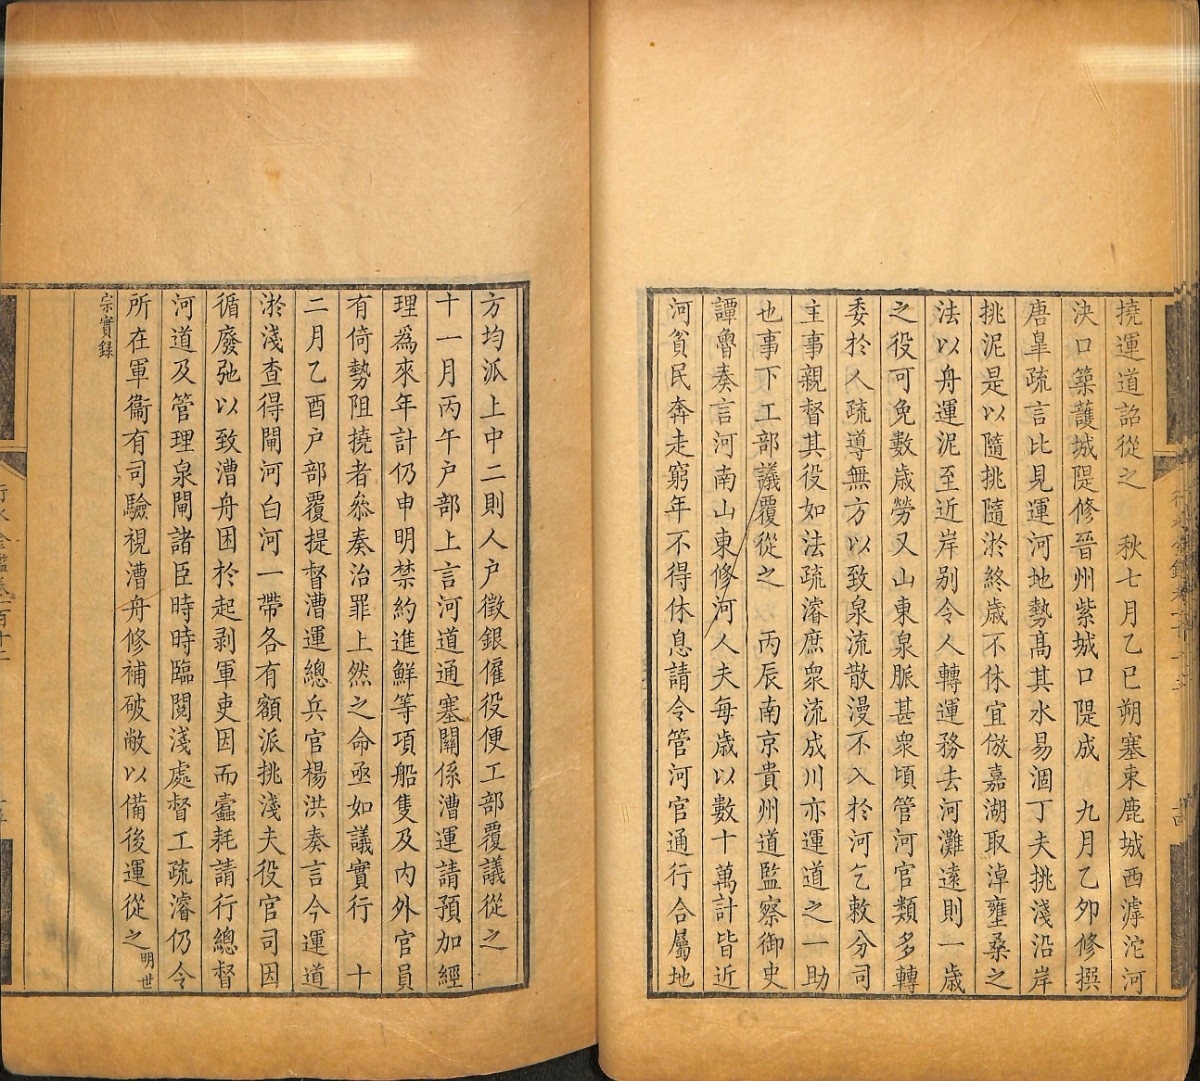 撓運道詔從之　秋七月乙巳朔塞束鹿城西滹沱河
決口築護城隄修晉州紫城口隄成　九月乙夘修撰
唐臯疏言比見運河地勢髙其水易涸丁夫挑淺沿岸
挑泥是以隨挑隨淤終歳不休宜倣嘉湖取淖壅桑之
法以舟運泥至近岸别令人轉運務去河灘逺則一歳
之役可免數歳勞又山東泉脈甚衆頃管河官類多轉
委於人疏導無方以致泉流散漫不入於河乞敕分司
主事親督其役如法疏濬庶衆流成川亦運道之一助
也事下工部議覆從之　丙辰南京貴州道監察御史
譚魯奏言河南山東修河人夫每歳以數十萬計皆近
河貧民奔走窮年不得休息請令管河官通行合屬地
方均派上中二則人户徵銀僱役便工部覆議從之
十一月丙午户部上言河道通塞關係漕運請預加經
理爲來年計仍申明禁約進鮮等項船隻及内外官員
有倚勢阻撓者叅奏治罪上然之命亟如議實行　十
二月乙酉户部覆提督漕運總兵官楊洪奏言今運道
淤淺查得閘河白河一帶各有額派挑淺夫役官司因
循廢弛以致漕舟困於起剥軍吏因而蠧耗請行總督
河道及管理泉閘諸臣時時臨閲淺處督工疏濬仍令
所在軍衞有司驗視漕舟修補破敝以備後運從之明世
宗實録